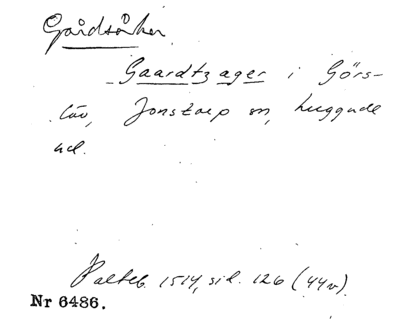 Gårdsåker
Gaardtzager i Görs-
löv, Jonstorp sn, Luggude
hd.
Palteb. 1514, sid. 126 (44v).
Nr 6486.